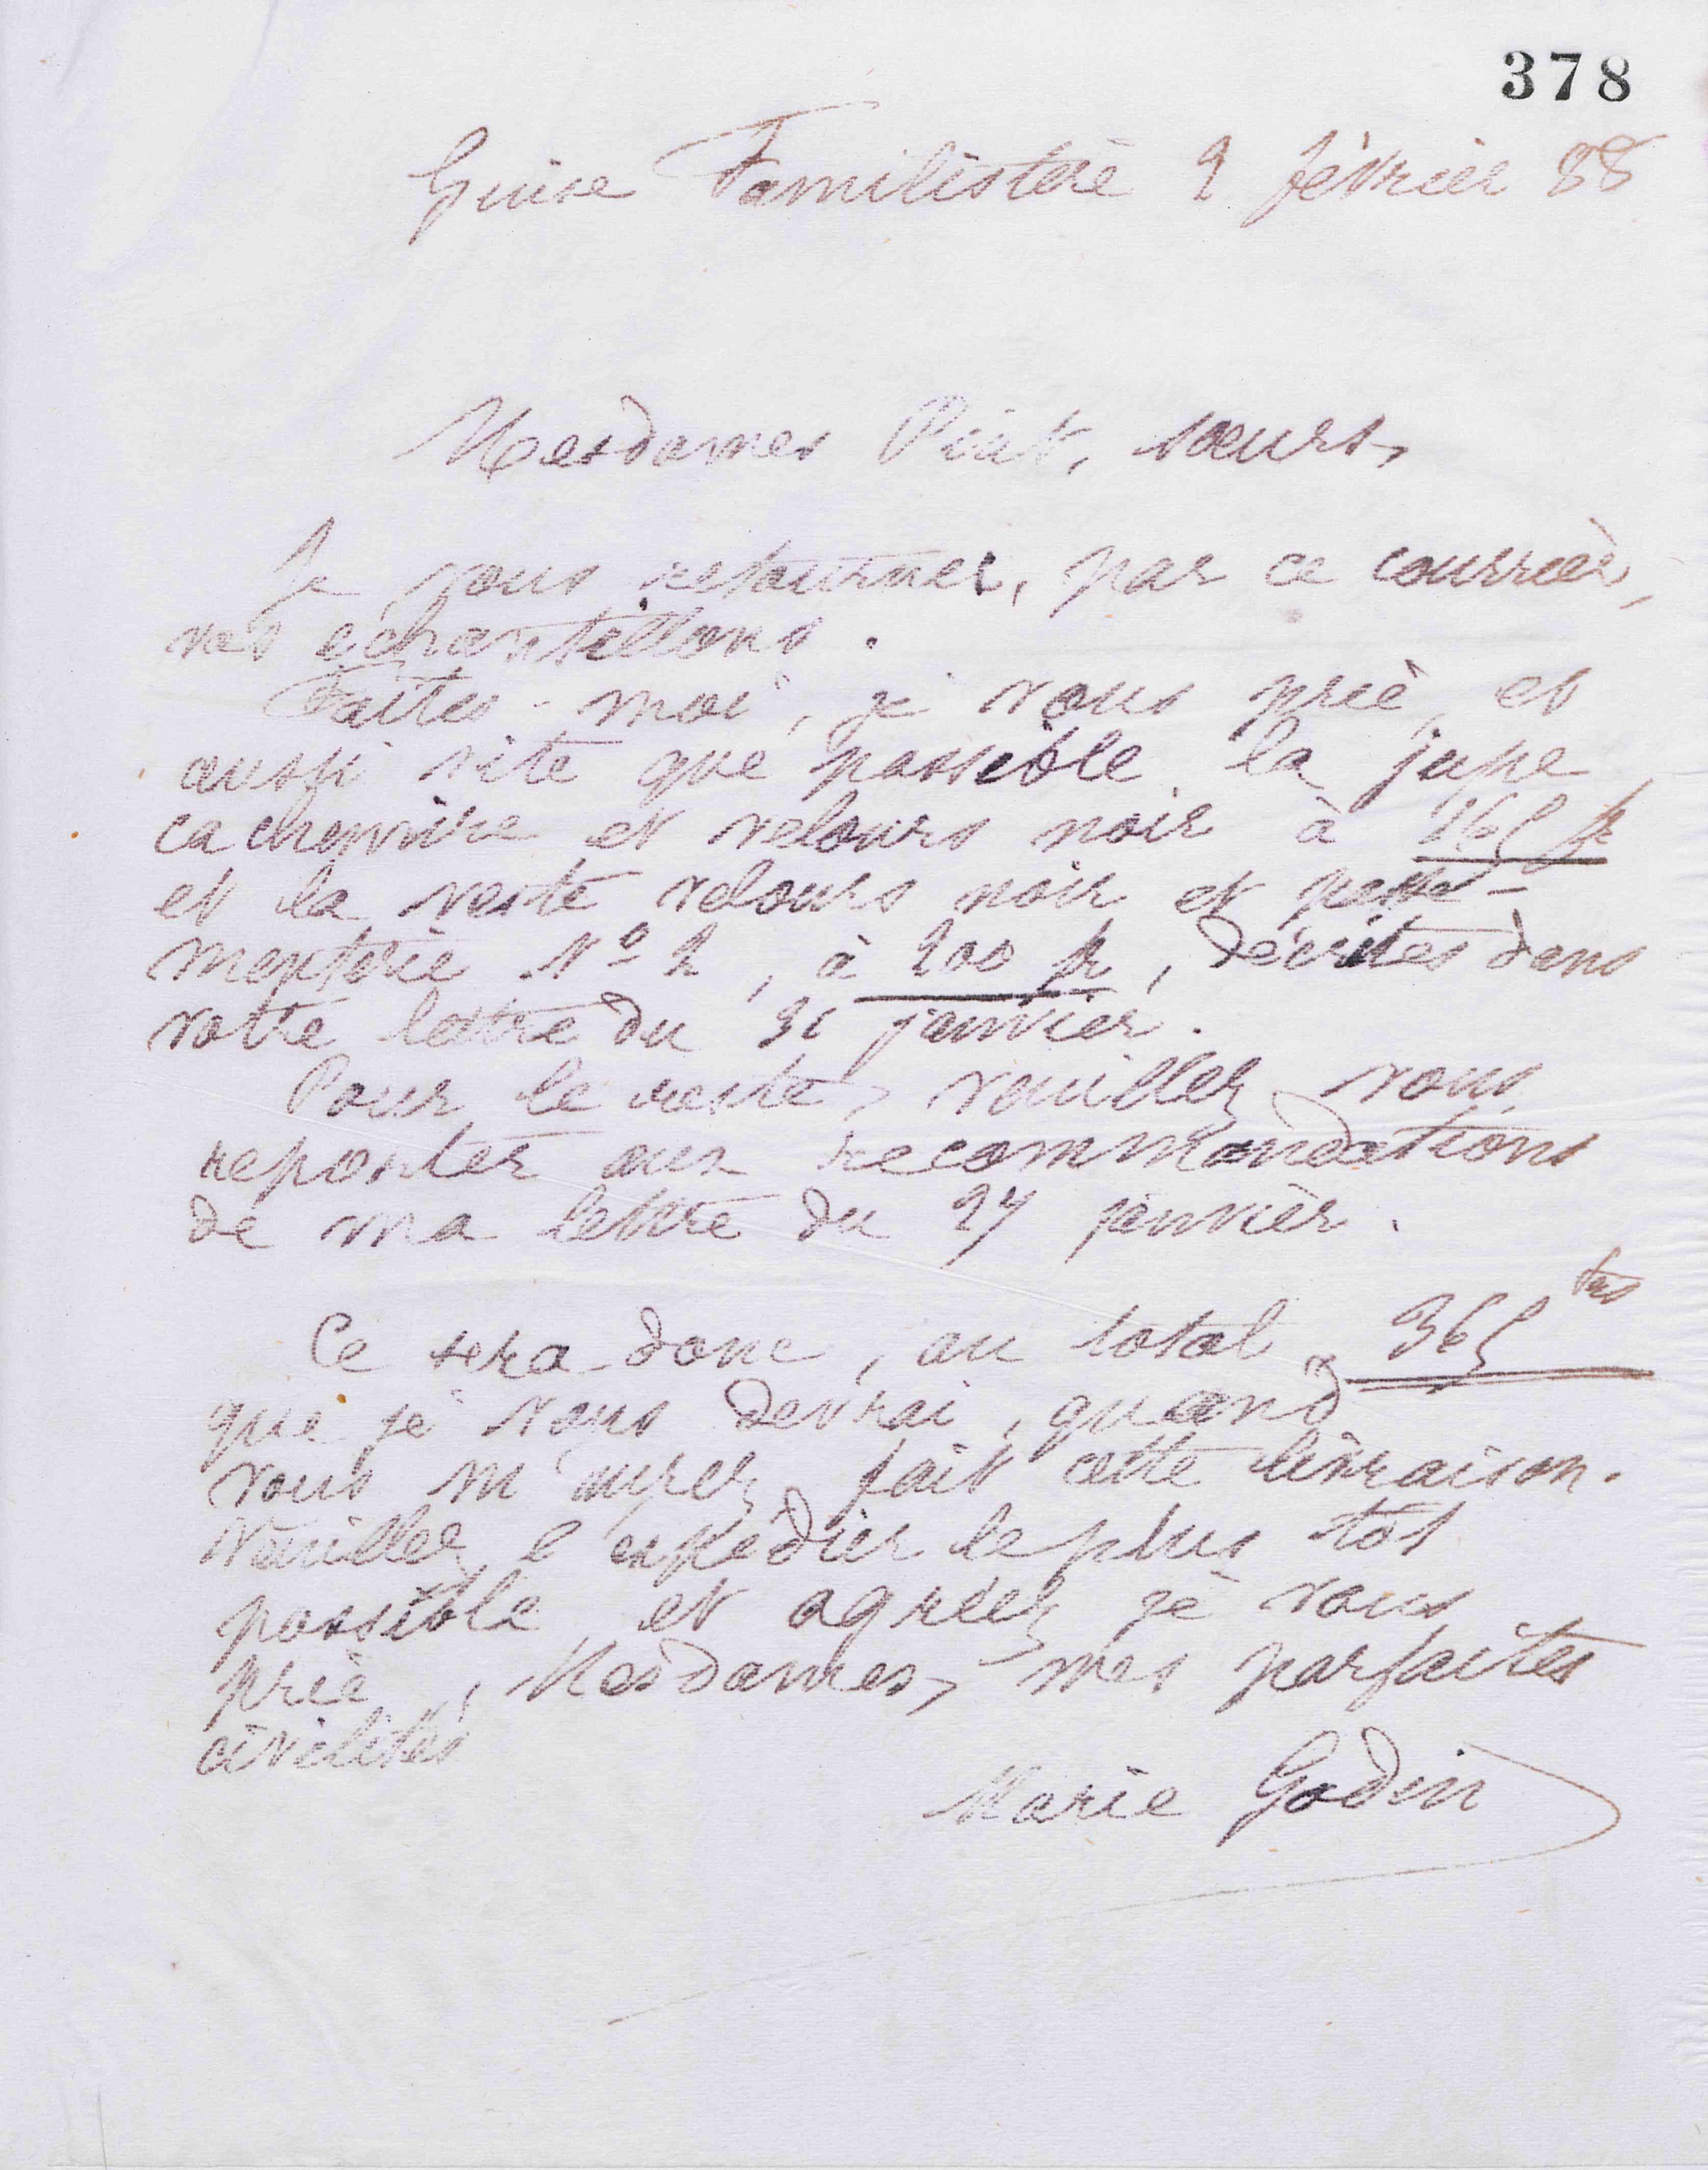 378
Guise Familistère 2 février 88
Mesdames Piat, sœurs,
Je vous retourne, par ce courrier,
vos échantillons.
Faites-moi, je vous prie, et
aussi vite que possible la jupe
cachemire et velours noir à 165 fr
et la veste velours noir et passe-
menterie No 2, à 200 fr, décrites dans
votre lettre du 31 janvier.
Pour le reste, veuillez vous
reporter aux recommandations
de ma lettre du 27 janvier.
Ce sera donc, au total, 365 frs
que je vous devrai, quand
vous m'aurez fait cette livraison.
Veuillez l'expédier le plus tôt
possible et agréez, je vous
prie, Mesdames, mes parfaites
civilités
Marie Godin